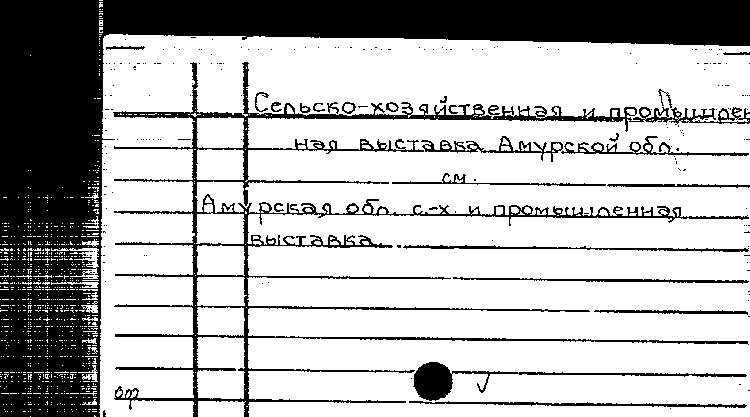 Сельско-хозяйственная и промышлен
ная выставка Амурской обл.
см.
Амурская обл. с.-х. и промышленная
выставка.